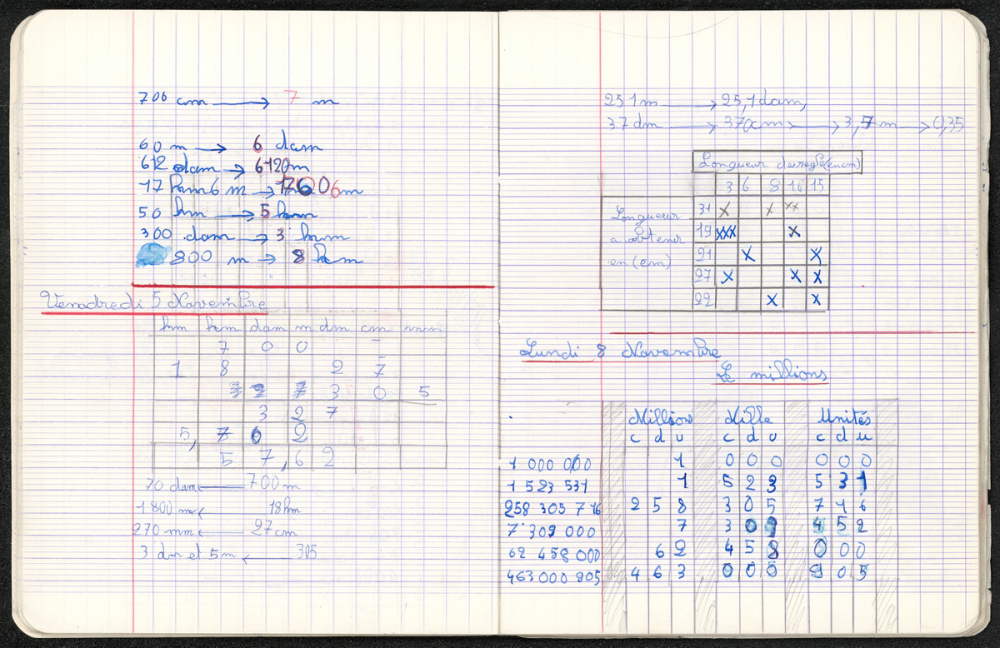 700 cm → 7 m
60 m → 6 dam
612 dam → 6120m
17 hm 6 m → 17606m
50 hm → 5 km
300 dam → 3 km
800 m → 8 hm
Vendredi 5 Novembre
hm dam m dm cm mm
7 0 0
1 8 2 7
3 0 5
3 2 7
5, 7 6 2
5 7,6 2
70 dam ← 700 m
1 800 m ← 18hm
270 mm ← 27 cm
3 dm et 5 m ← 305
251m → 25,1dam,
37dm → 370cm → 3,7 m → 0,35
Longueur du reglet(en cm)
3 6 8 16 15
Longueur
a obtenir
en (cm)
31 X X XX
19 XXX X
21 X X
27 X X X
22 X X
Lundi 8 Novembre
Le millions
Millions Mille Unités
c d u c d u c d u
1 000 000 1 0 0 0 0 0 0
1 523 531 1 5 2 3 5 3 1
258 305 716 2 5 8 3 0 5 7 1 6
7 309 000 7 3 0 9 4 5 2
62 458 000 6 2 4 5 8 0 0 0
463 000 905 4 6 3 0 0 0 9 0 5